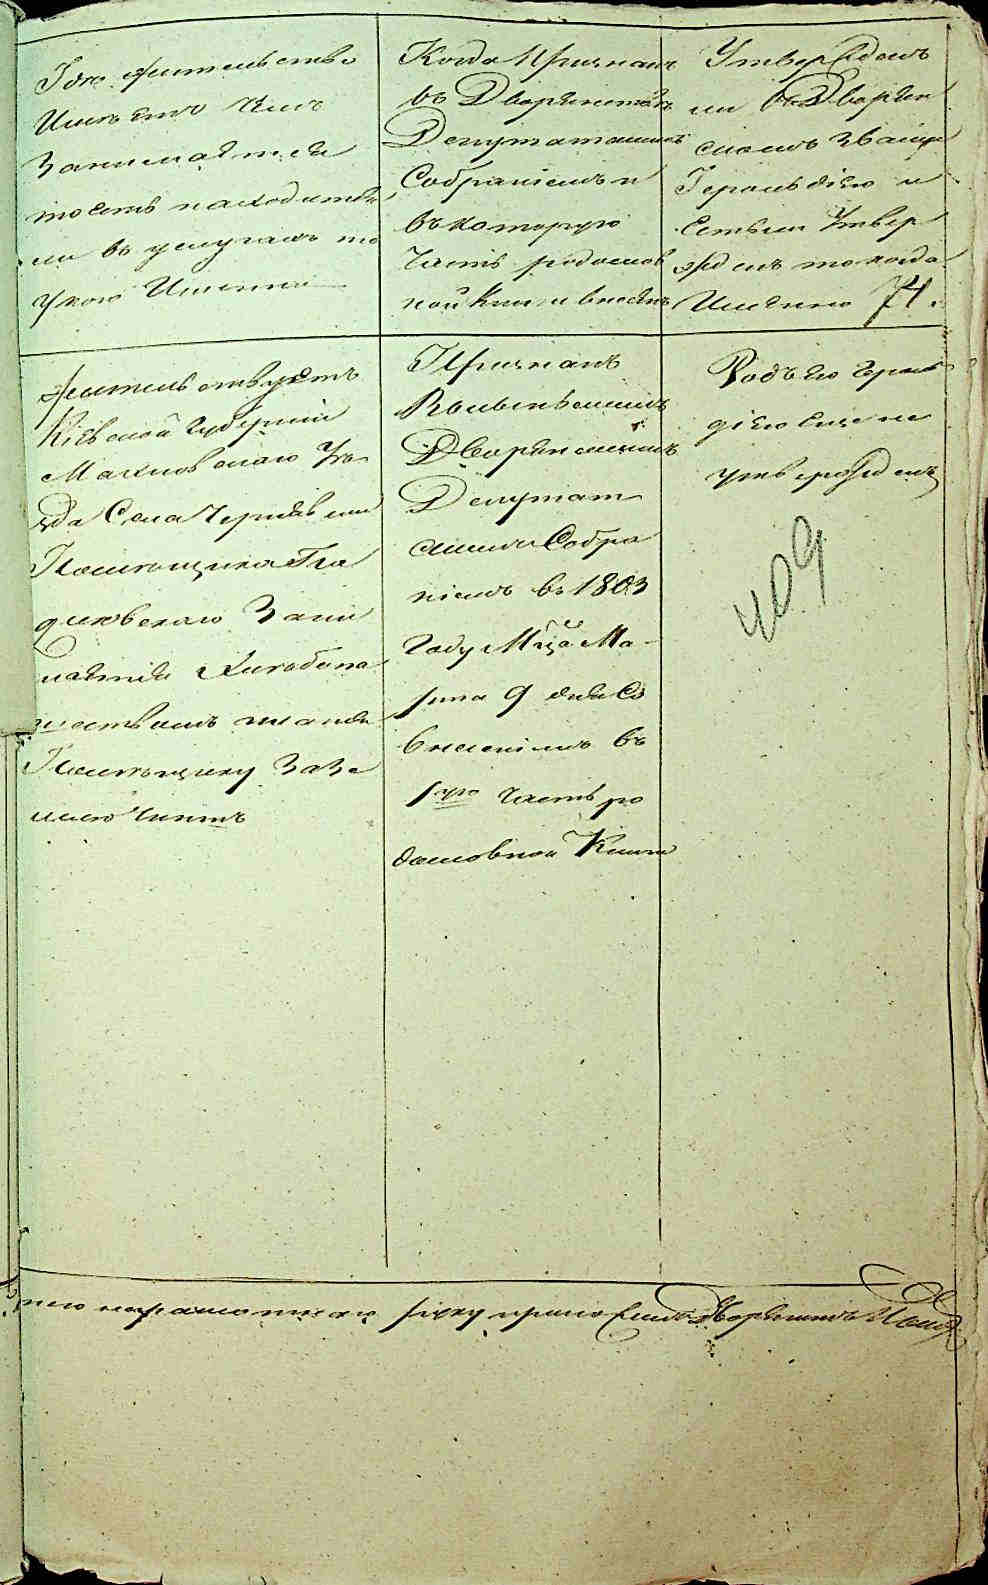 Где жительство
Имѣетъ Чемъ
Занимается
то есть находится
ли въ услугахъ то
у кого Именно
Когда Признанъ
въ Дворянствѣ
Депутатскимъ
Собраніемъ и
въ которую
Часть родослов
ной Книги внесенъ
Утвержденъ
ли въ Дворян
скомъ званіи
Герольдіею и
Естьли Утвер
жденъ то когда
Именно 74.
Жительствуетъ
Кіевской Губерніи
Махновскаго Уѣ
зда Села Чернявки
Помѣщика
Зани
мается Хлебопа
шествомъ
Помѣщику За Зе
млю Чиншъ
Признанъ
Волынскимъ
Дворянскимъ
Депутат
скимъ Собра
ніемъ въ 1803
Году Мца Ма
рта 9 дня Со
внесеніемъ въ
1ую Часть ро
дословной Книги
Родъ Его Героль
діею Еще не
утвержденъ
409
неграмотнаго руку приложилъ Дворянинъ